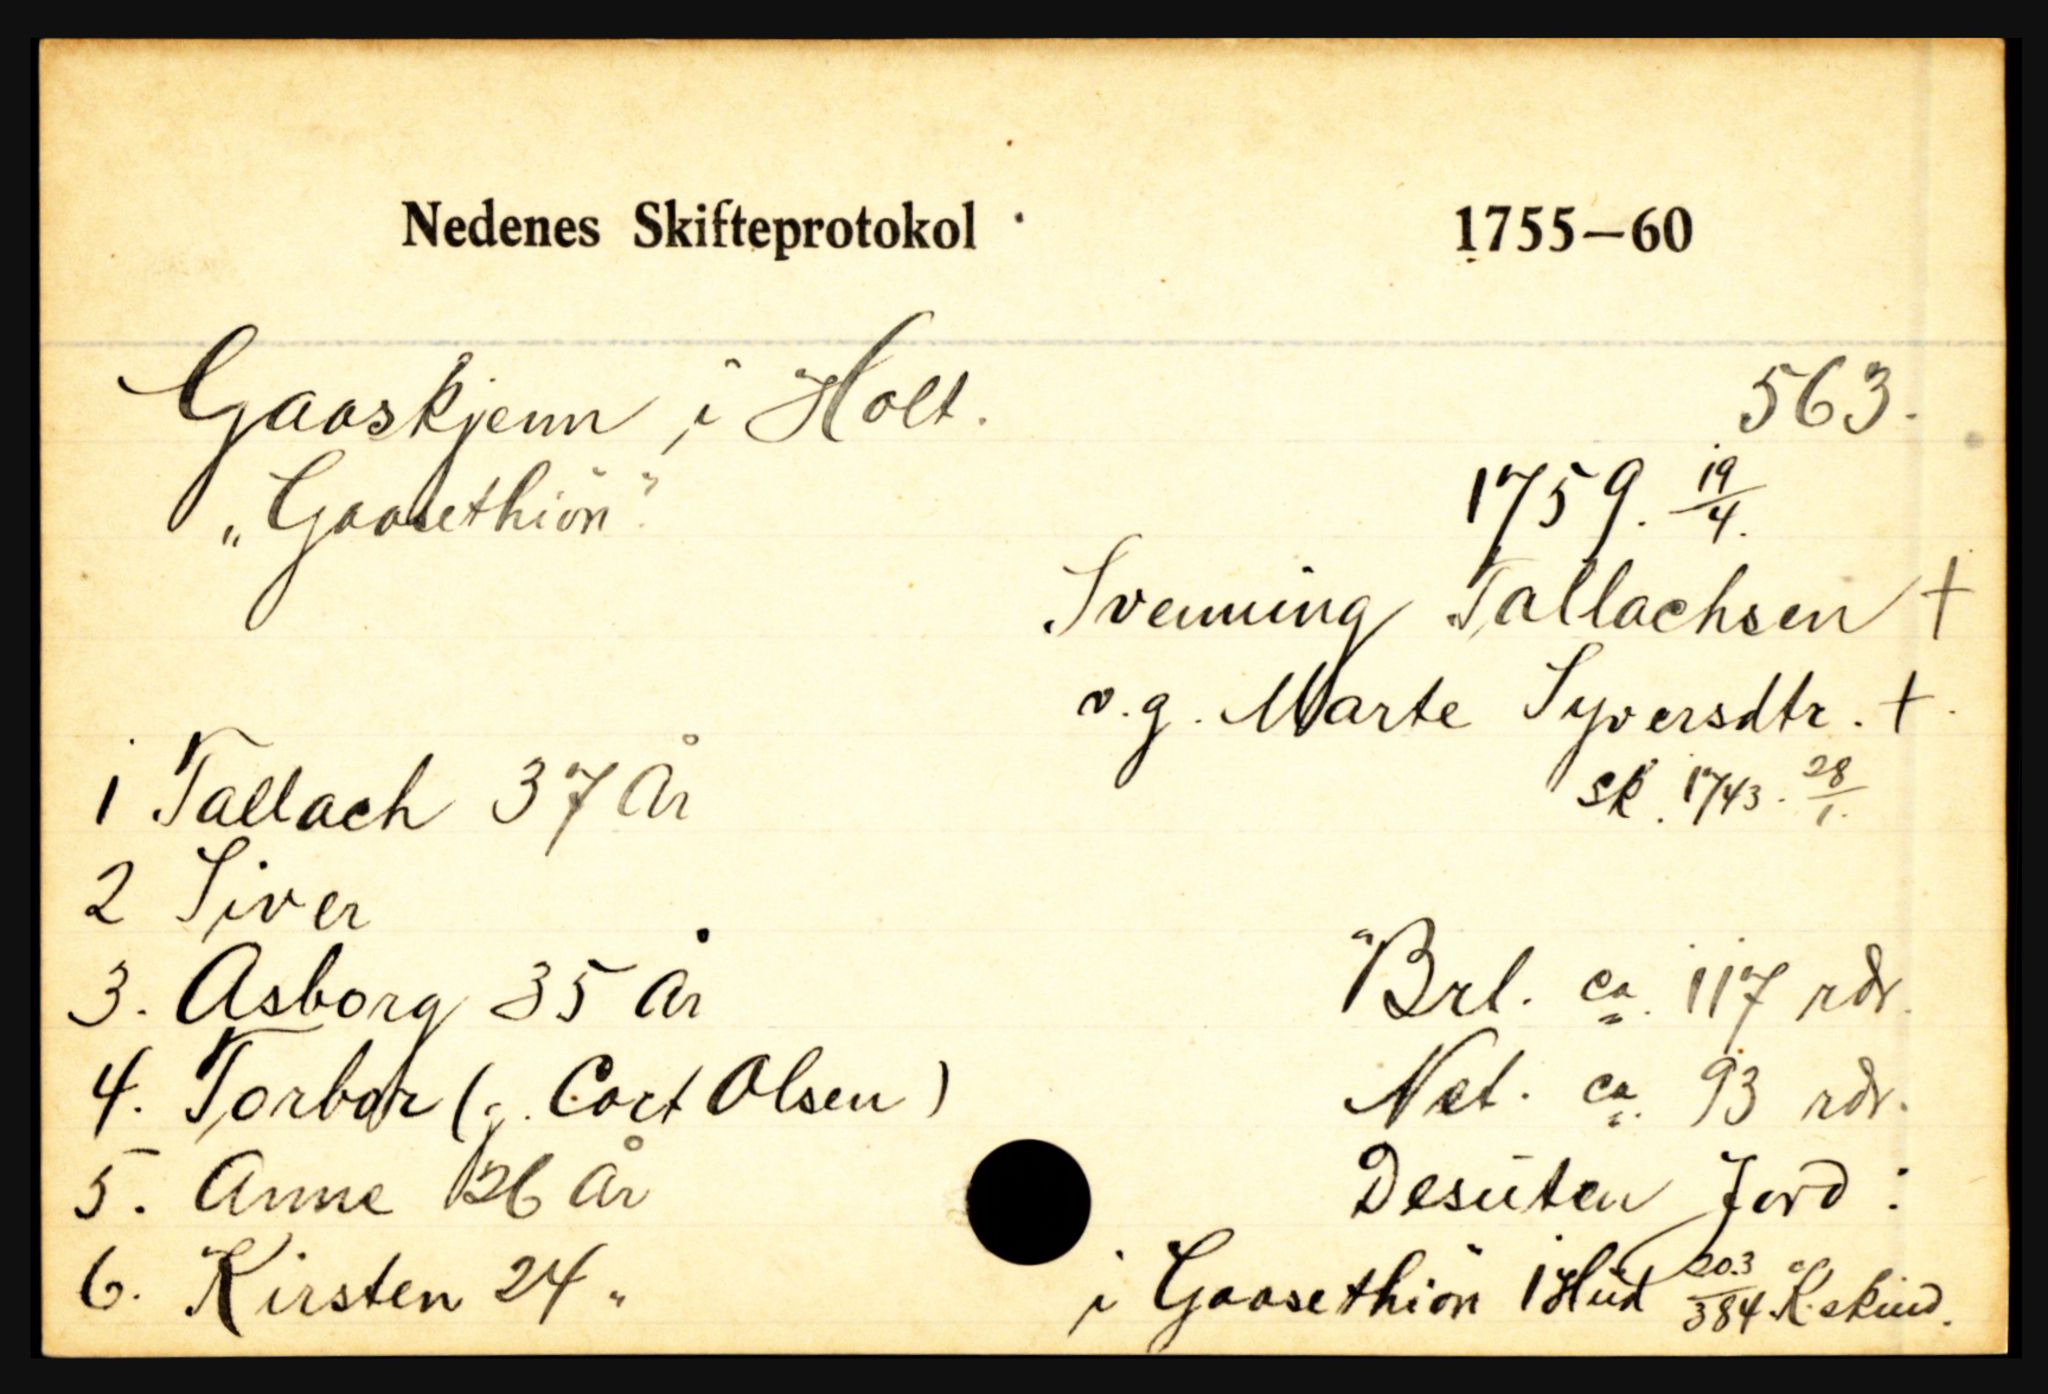 Nedenes Skifteprotokol 1755—60
Gaaskjenn i Holt. 563.
„Gaasethiön" 1759. 19/4.
Svenning Tallachsen +
v.g. Marte Syversdtr. +.
sk. 1743. 28/1.
1 Tallach 37 År
2 Siver
3. Asborg 35 År
Brt. ca. 117 rdr.
4. Torbor (g. Cort Olsen)
Net. ca. 93 rdr.
5. Anne 26 År
Desuten Jord:
6. Kirsten 24 „
i Gaasethiön 1 Hud 203/384 K.skind.